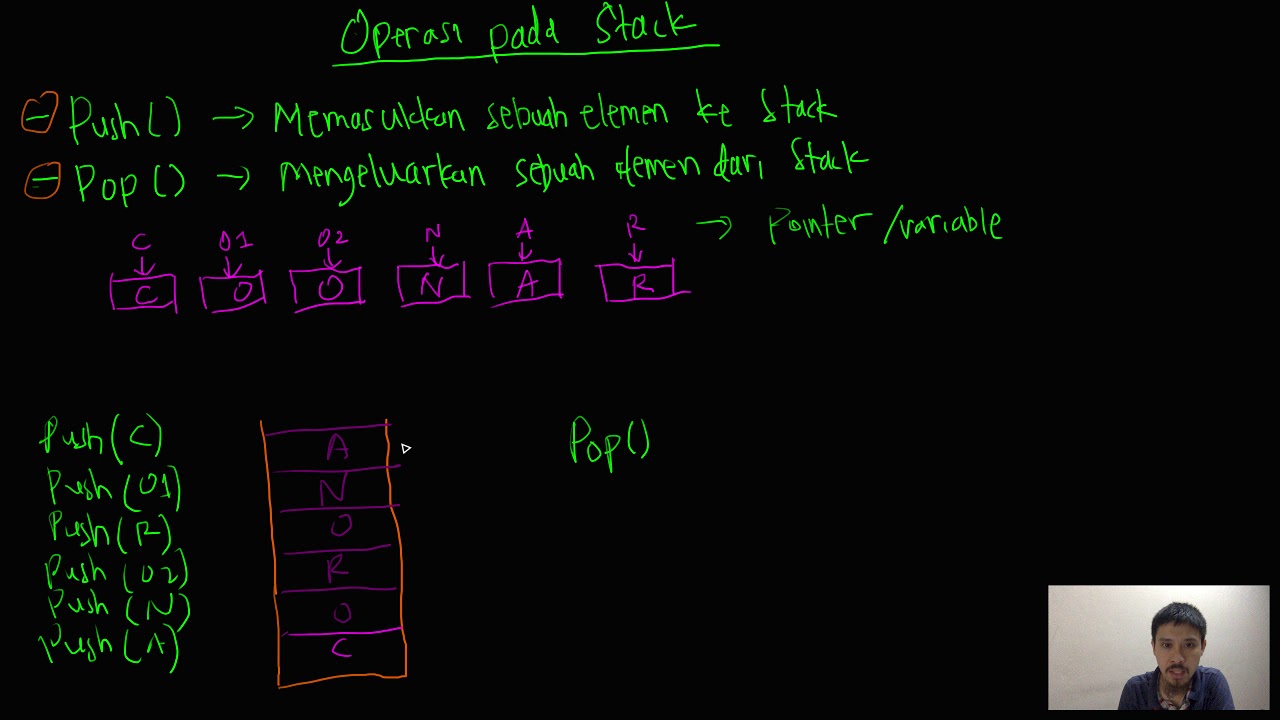 Operasi pada Stack
- Push() → Memasukkan sebuah elemen ke Stack
- Pop() → Mengeluarkan sebuah elemen dari Stack
C O1 O2 N A R → Pointer/variable
C O O N A R
Push(C)
Push(O1)
Push(R)
Push(O2)
Push(N)
Push(A)
A
N
O
R
O
C
Pop()